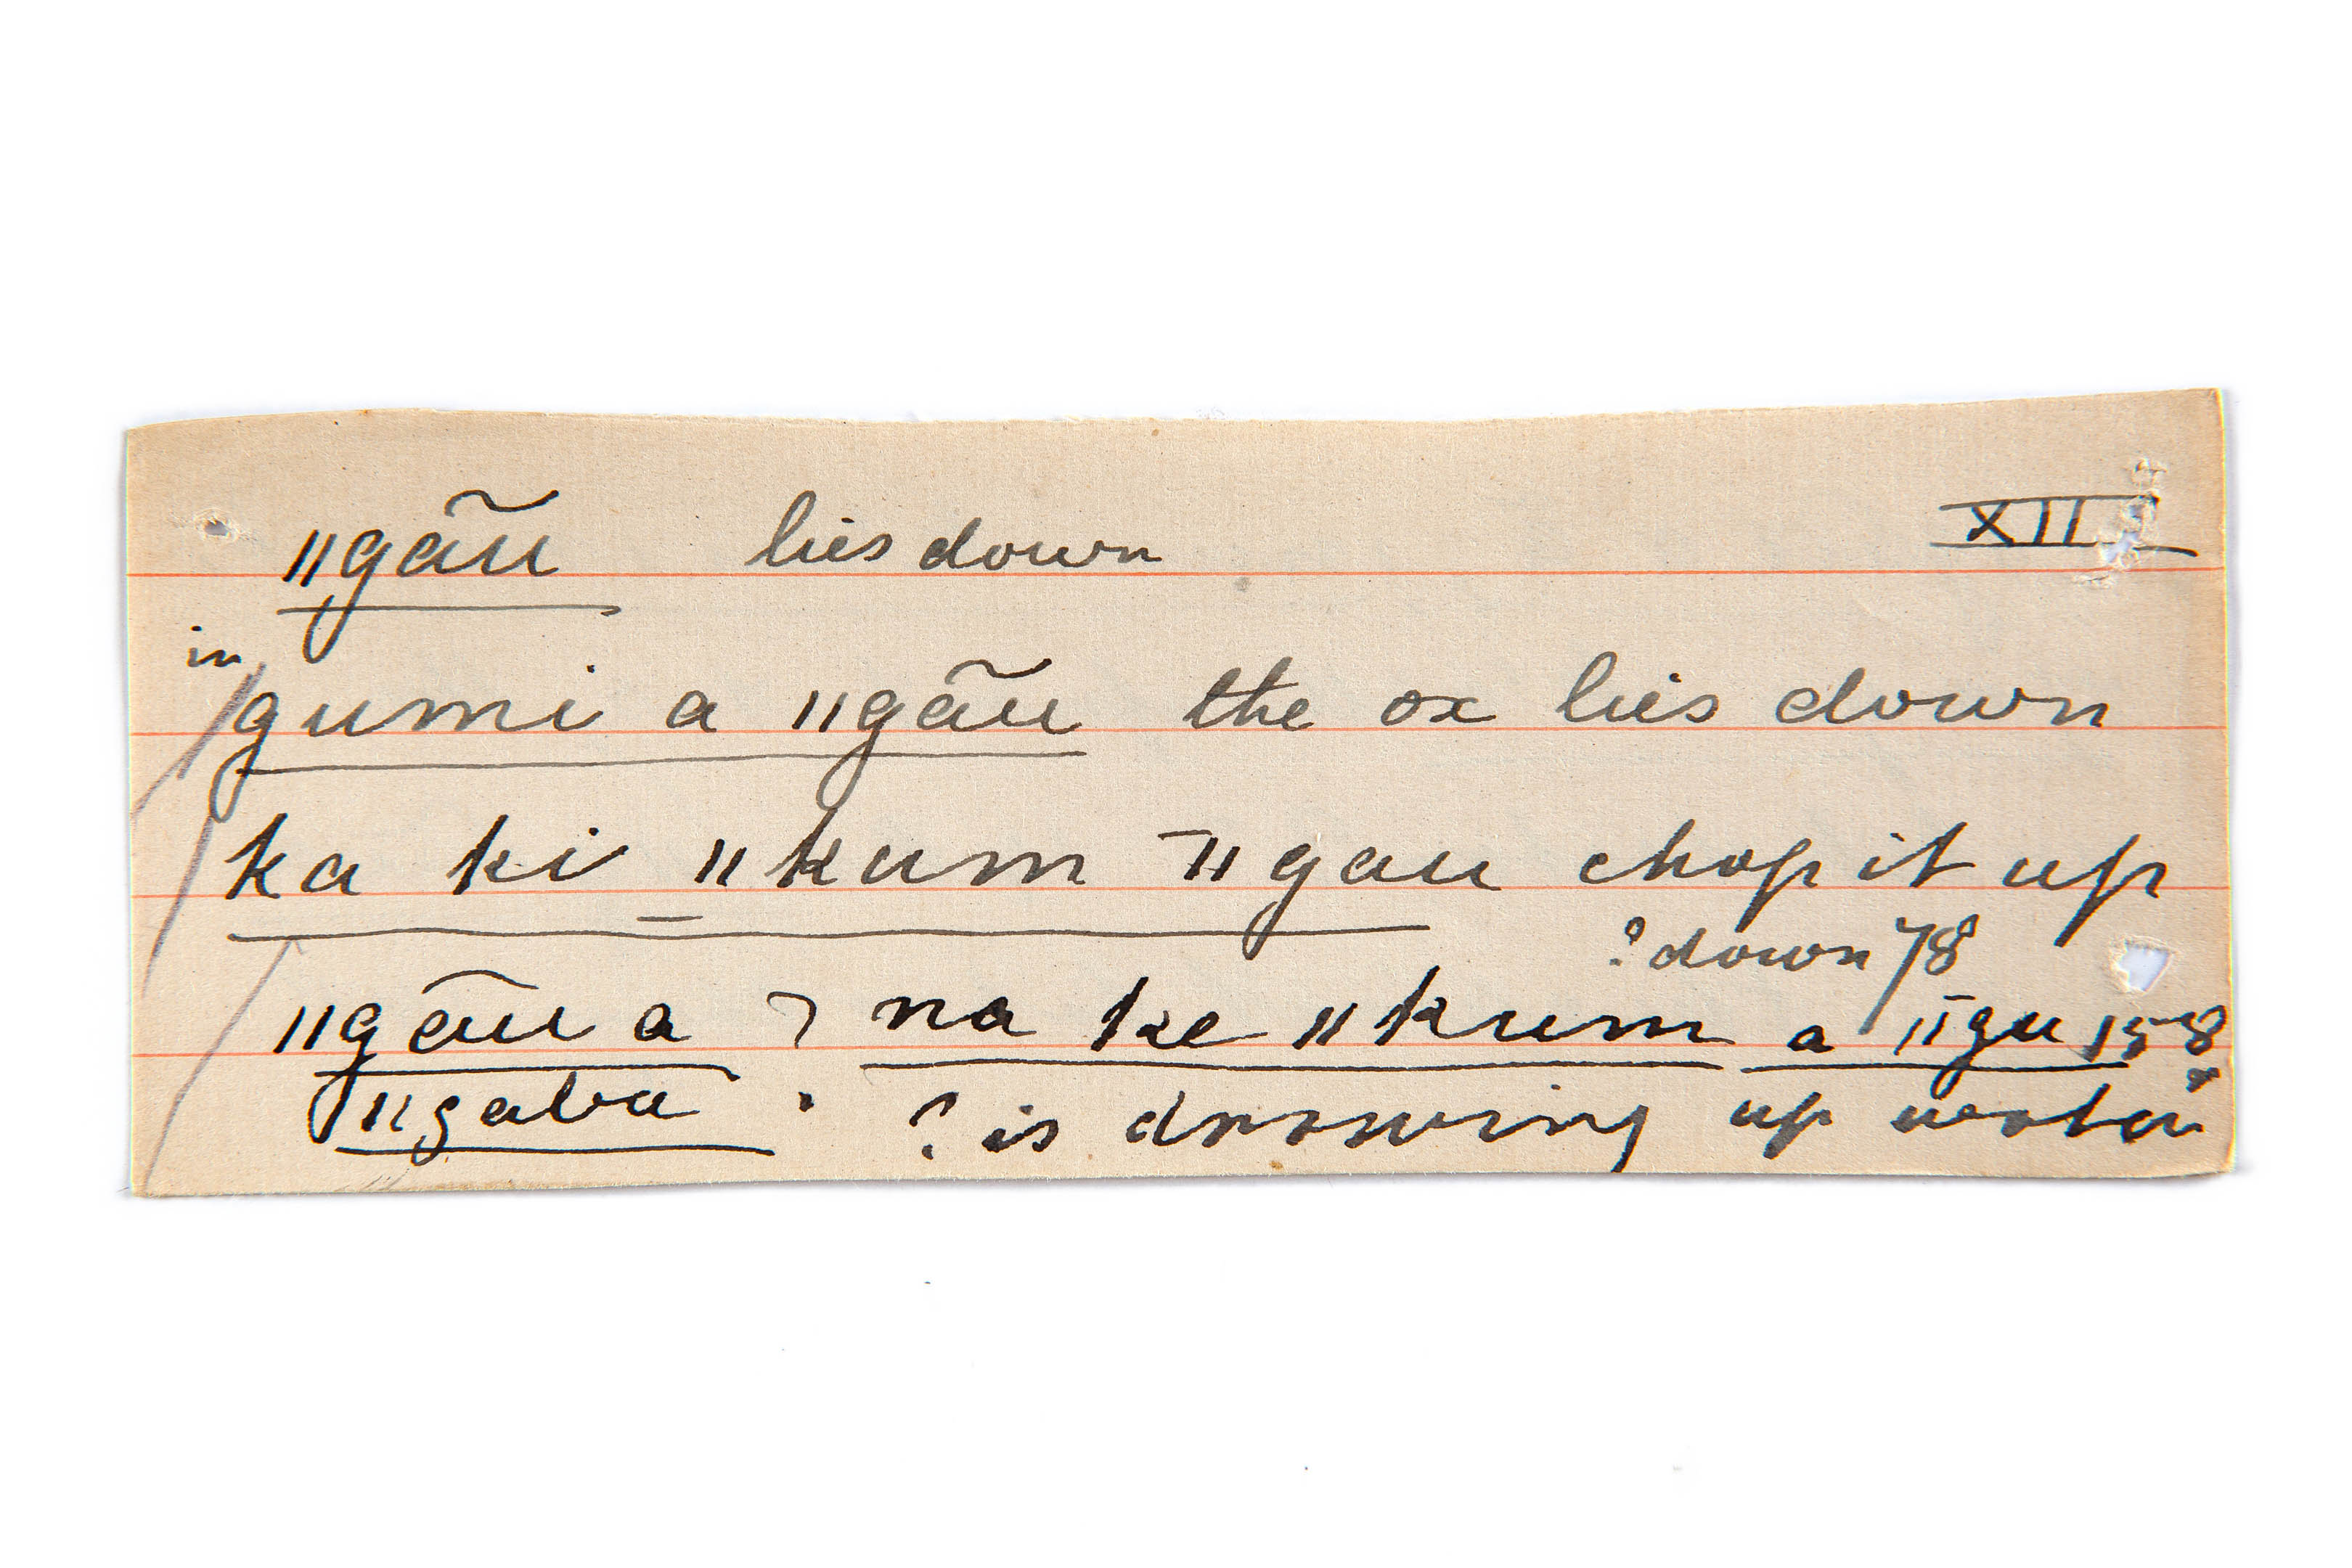 ǁgãu lies down XII
in
gumi a ǁgãu the ox lies down
ka ki ǁkum ˉǁgau chop it up
? down 78
ǁgãu a ? na ke ǁkum a ˉǁgu 158
ǁgaba ? is drawing up water